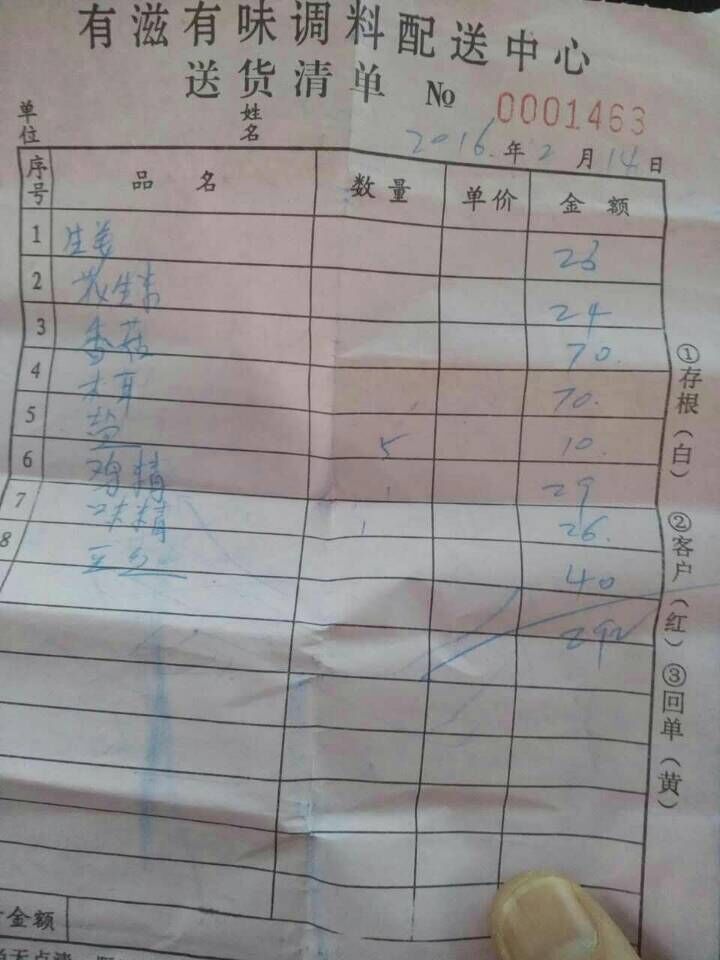 有滋有味调料配送中心
送货清单 № 0001463
单位 姓名 2016年2月14日
序号 品名 数量 单价 金额
1 生姜 23
2 花生米 24
3 香菇 70.
4 木耳 70.
5 盐 5 10.
6 鸡精 1 29
7 味精 1 26.
8 40
292
金额
①存根(白) ②客户(红) ③回单(黄)